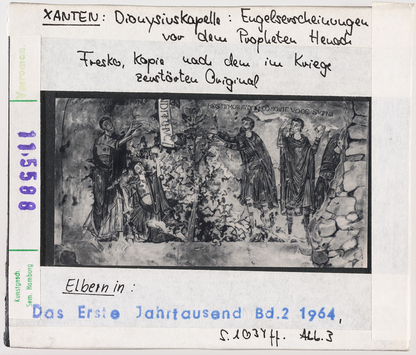 XANTEN: Dionysiuskapelle: Engelserscheinungen
vor dem Propheten Henoch
Fresko, Kopie nach dem im Kriege
zerstörten Original
11.5588
Kunstgesch.
Sem. Hamburg
Elbern in:
Das Erste Jahrtausend Bd.2 1964,
S. 1034ff. Abb. 3